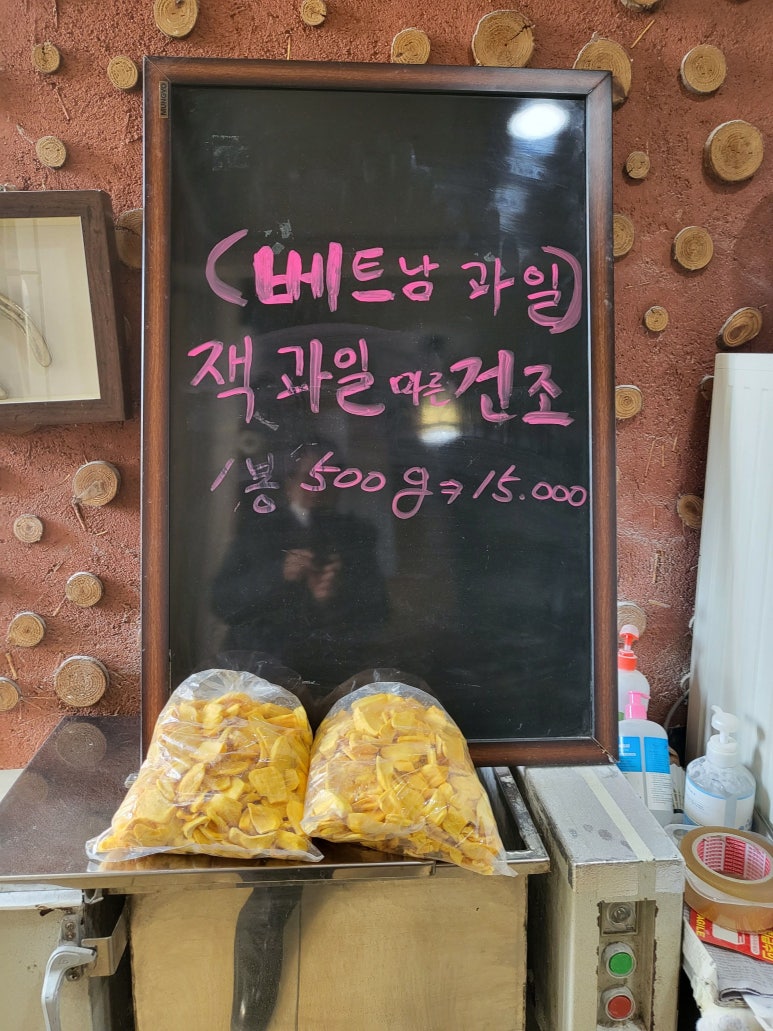 MUNGYO
(베트남 과일)
잭 과일 마른 건조
1봉 500g → 15.000